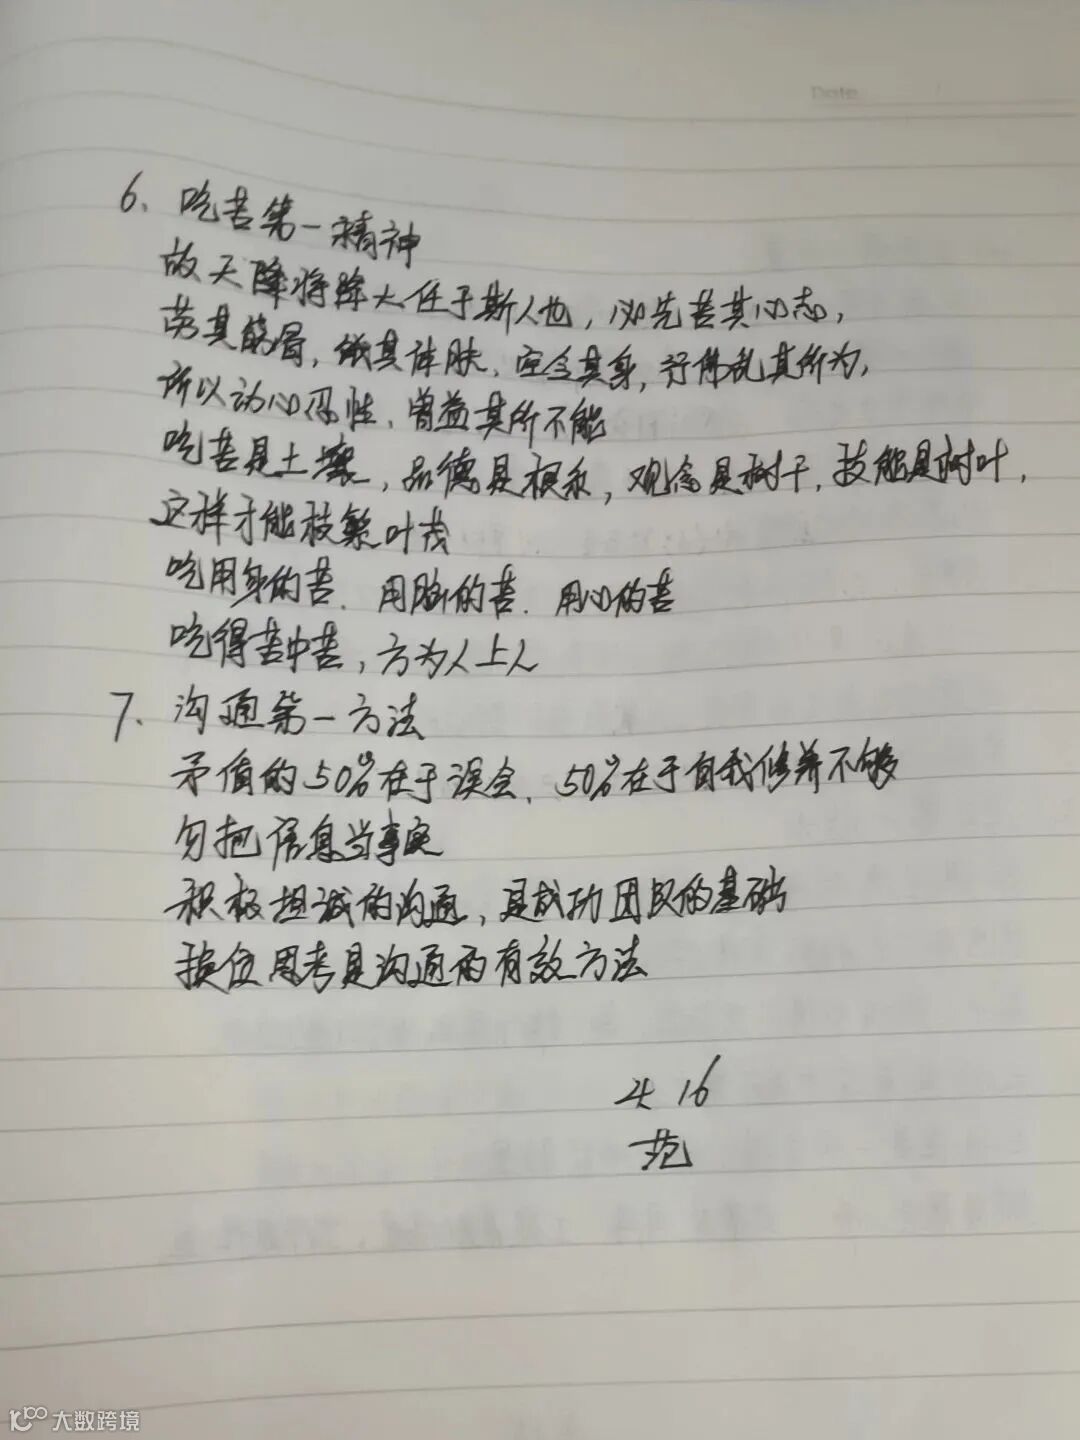 Date
6、吃苦第一精神
故天降将降大任于斯人也，必先苦其心志，
劳其筋骨，饿其体肤，空乏其身，行佛乱其所为，
所以动心忍性，曾益其所不能
吃苦是土壤，品德是根系，观念是树干，技能是树叶，
这样才能枝繁叶茂
吃用身的苦、用脑的苦、用心的苦
吃得苦中苦，方为人上人
7、沟通第一方法
矛盾的50%在于误会、50%在于自我修养不够
勿把信息当事实
积极坦诚的沟通，是成功团队的基础
换位思考是沟通的有效方法
4 16
范
大数跨境